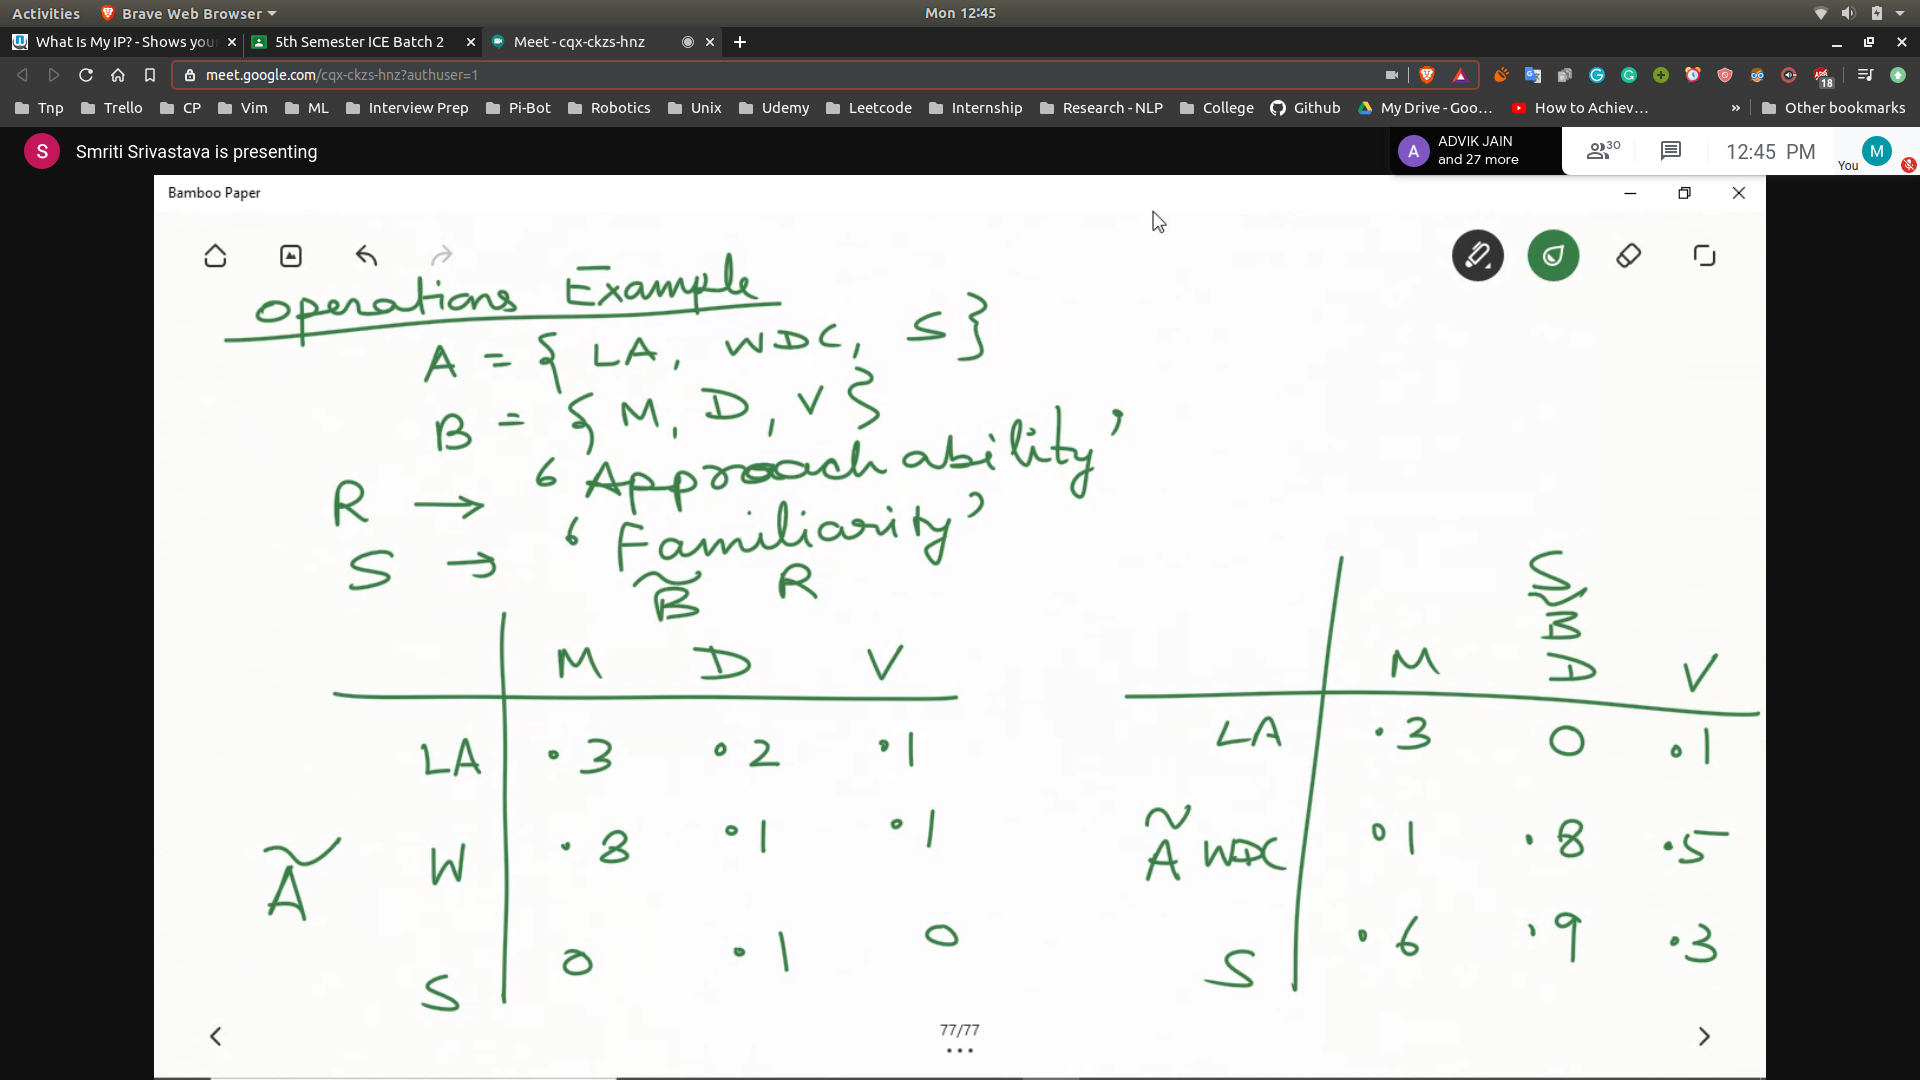 Activities Brave Web Browser Mon 12:45
What Is My IP? - Shows you 5th Semester ICE Batch 2 Meet - cqx-ckzs-hnz
meet.google.com/cqx-ckzs-hnz?authuser=1 18
Tnp Trello CP Vim ML Interview Prep Pi-Bot Robotics Unix Udemy Leetcode Internship Research - NLP College Github My Drive - Goo... How to Achiev... » Other bookmarks
S Smriti Srivastava is presenting A ADVIK JAIN
and 27 more
30 12:45 PM You M
Bamboo Paper
Operations Example
A = { LA, WDC, S }
B = { M, D, V }
R → 'Approachability'
S → 'Familiarity'
B̃ R
M D V
LA .3 .2 .1
Ã W .8 .1 .1
S 0 .1 0
S
B̃
M D V
LA .3 0 .1
Ã WDC .1 .8 .5
S .6 .9 .3
77/77